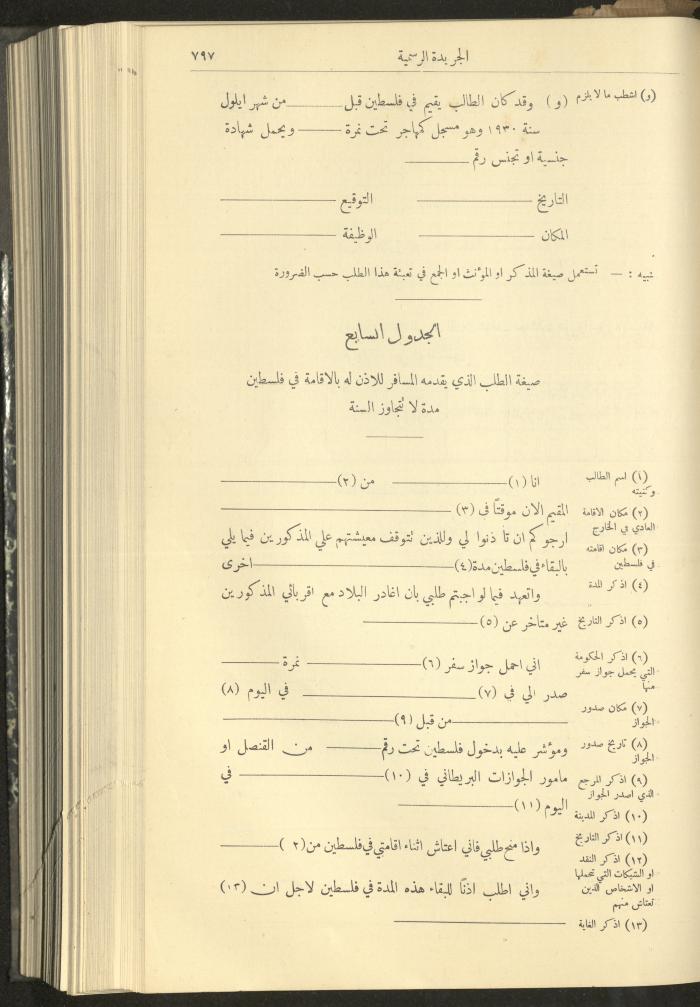 الجريدة الرسمية ٧٩٧
(و) اشطب ما لا يلزم (و) وقد كان الطالب يقيم في فلسطين قبل ______ من شهر ايلول
سنة ١٩٣٠ وهو مسجل كمهاجر تحت نمرة ______ ويحمل شهادة
جنسية او تجنس رقم ______
التاريخ ______ التوقيع ______
المكان ______ الوظيفة ______
تنبيه : — تستعمل صيغة المذكر او المؤنث او الجمع في تعبئة هذا الطلب حسب الضرورة
الجدول السابع
صيغة الطلب الذي يقدمه المسافر للاذن له بالاقامة في فلسطين
مدة لا تتجاوز السنة
(١) اسم الطالب
وكنيته
(٢) مكان الاقامة
العادي في الخارج
(٣) مكان اقامته
في فلسطين
(٤) اذكر المدة
(٥) اذكر التاريخ
(٦) اذكر الحكومة
التي يحمل جواز سفر
منها
(٧) مكان صدور
الجواز
(٨) تاريخ صدور
الجواز
(٩) اذكر المرجع
الذي اصدر الجواز
(١٠) اذكر المدينة
(١١) اذكر التاريخ
(١٢) اذكر النقد
او الشبكات التي تحملها
او الاشخاص الذين
تعتاش منهم
(١٣) اذكر الغاية
انا (١) ______ من (٢) ______
المقيم الان موقتًا في (٣) ______
ارجوكم ان تأذنوا لي وللذين تتوقف معيشتهم علي المذكورين فيما يلي
بالبقاء في فلسطين مدة (٤) ______ اخرى
واتعهد فيما لو اجبتم طلبي بان اغادر البلاد مع اقربائي المذكورين
غير متاخر عن (٥) ______
اني احمل جواز سفر (٦) ______ نمرة ______
صدر الي في (٧) ______ في اليوم (٨)
______ من قبل (٩) ______
ومؤشر عليه بدخول فلسطين تحت رقم ______ من القنصل او
مامور الجوازات البريطاني في (١٠) ______ في
اليوم (١١) ______
واذا منح طلبي فاني اعتاش اثناء اقامتي في فلسطين من (٢ ) ______
واني اطلب اذنًا للبقاء هذه المدة في فلسطين لاجل ان (١٣)
______